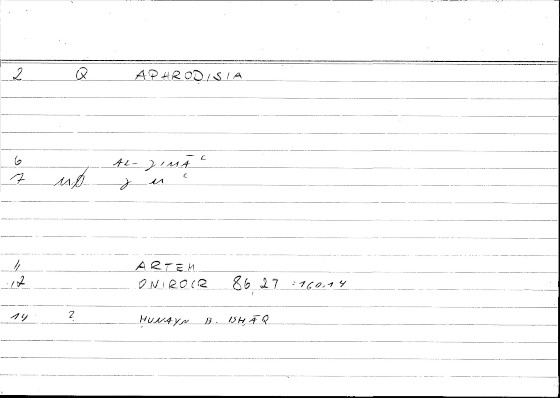 2 Q APHRODISIA
6 AL-ǦIMĀʿ
7 ǧ m ʿ
11 ARTEM
12 ONIROCR 86,27 = 160.14
14 ? ḤUNAYN B. ISḤĀQ